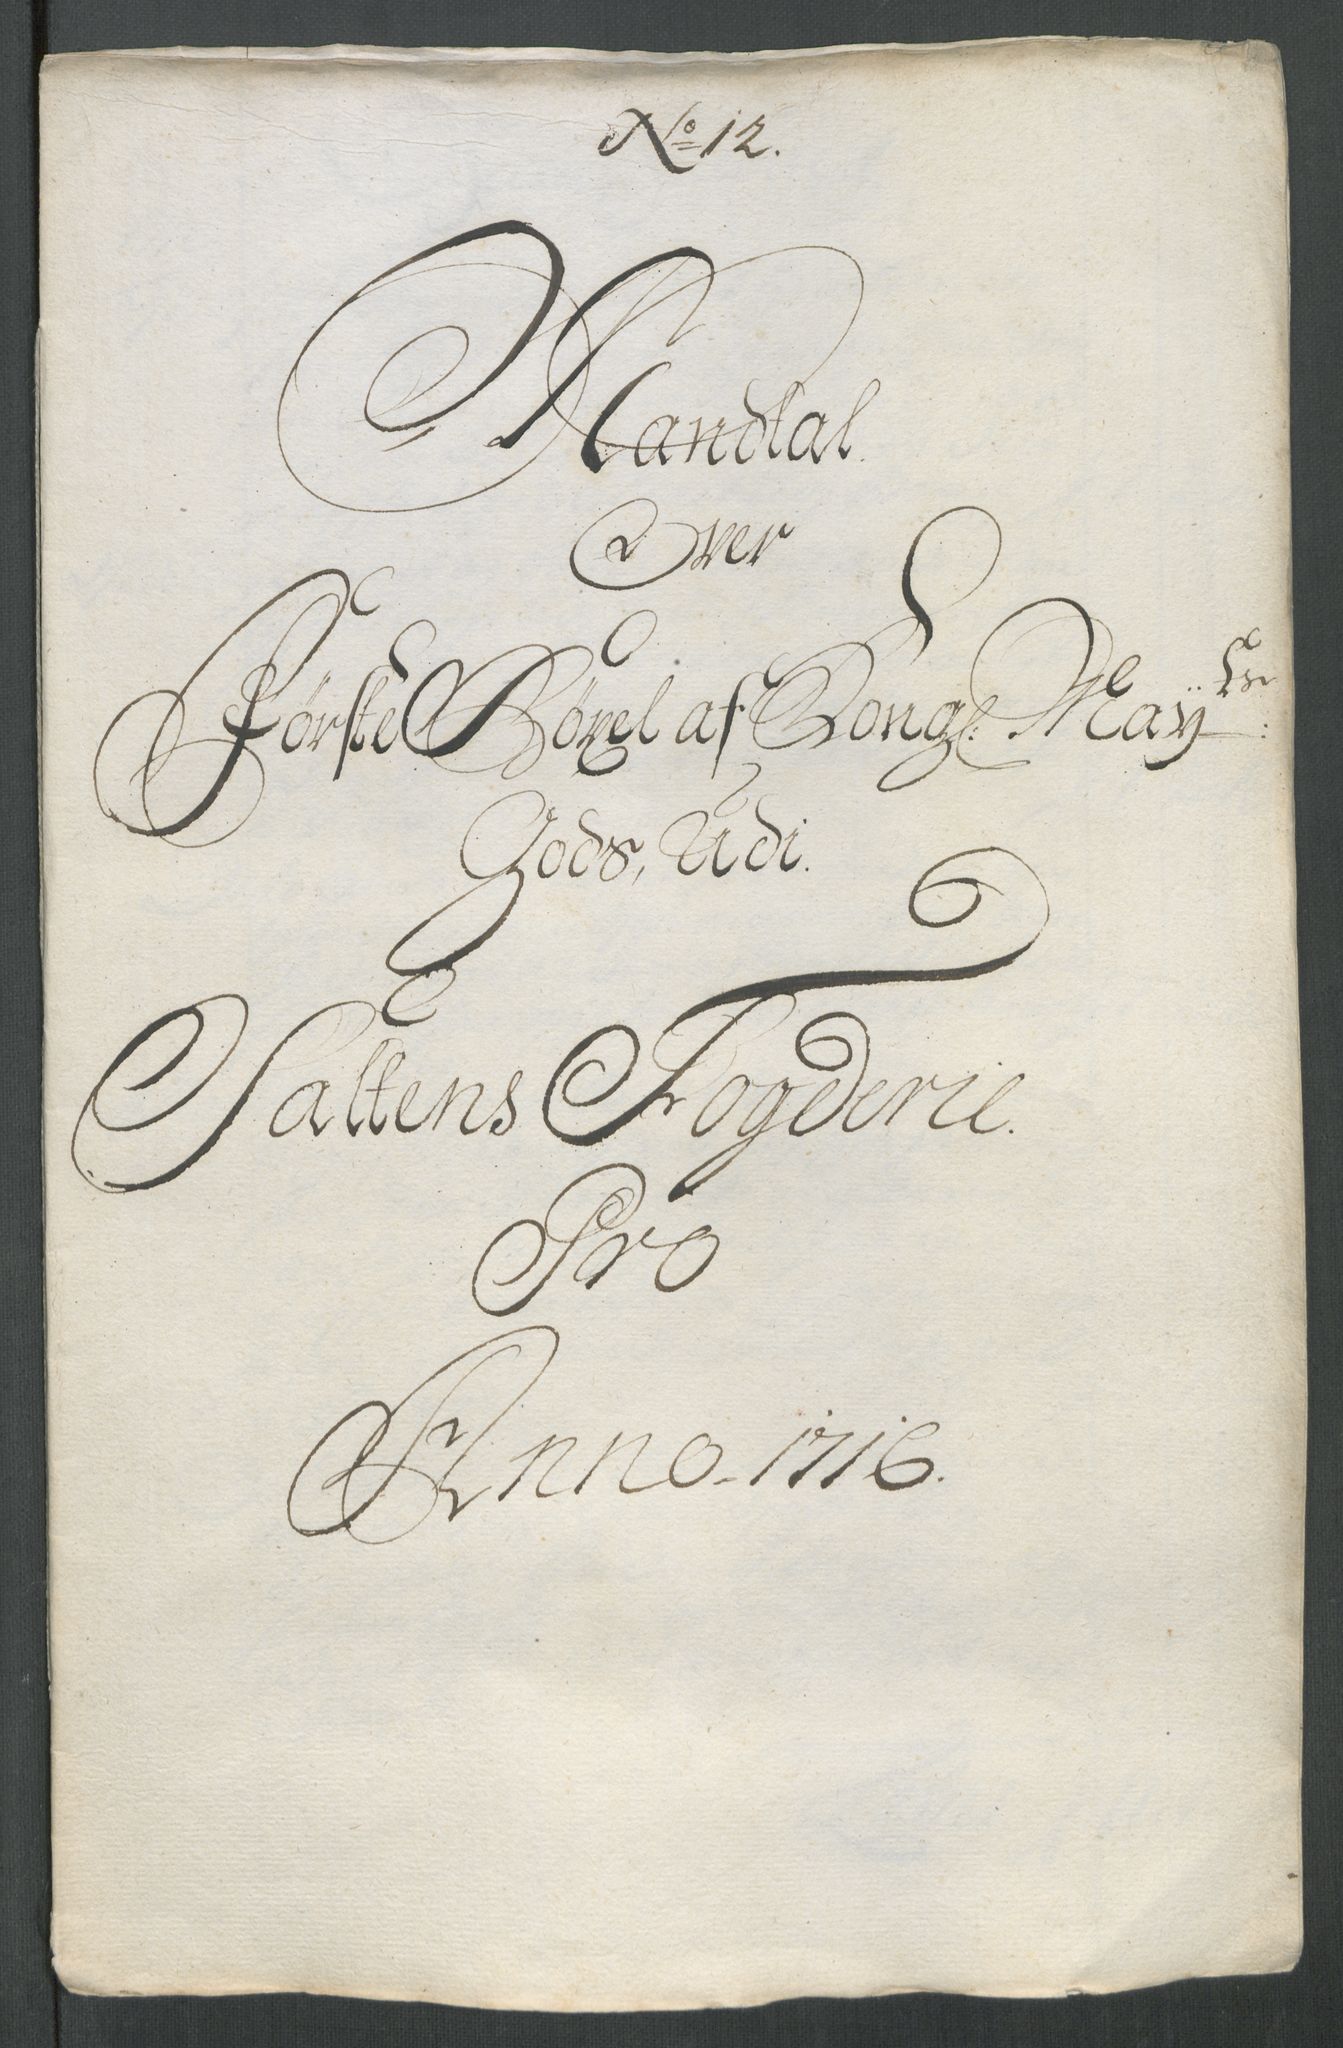 No 12.
Mandtal
Over
Første Bøxel af Kongl: Mayts:
Gods, Udi.
Saltens Fogderie.
Pro
Anno. 1716.